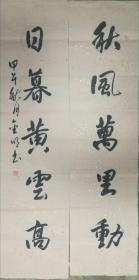 秋風萬里動
日暮黄雲高
甲午秋月金明書